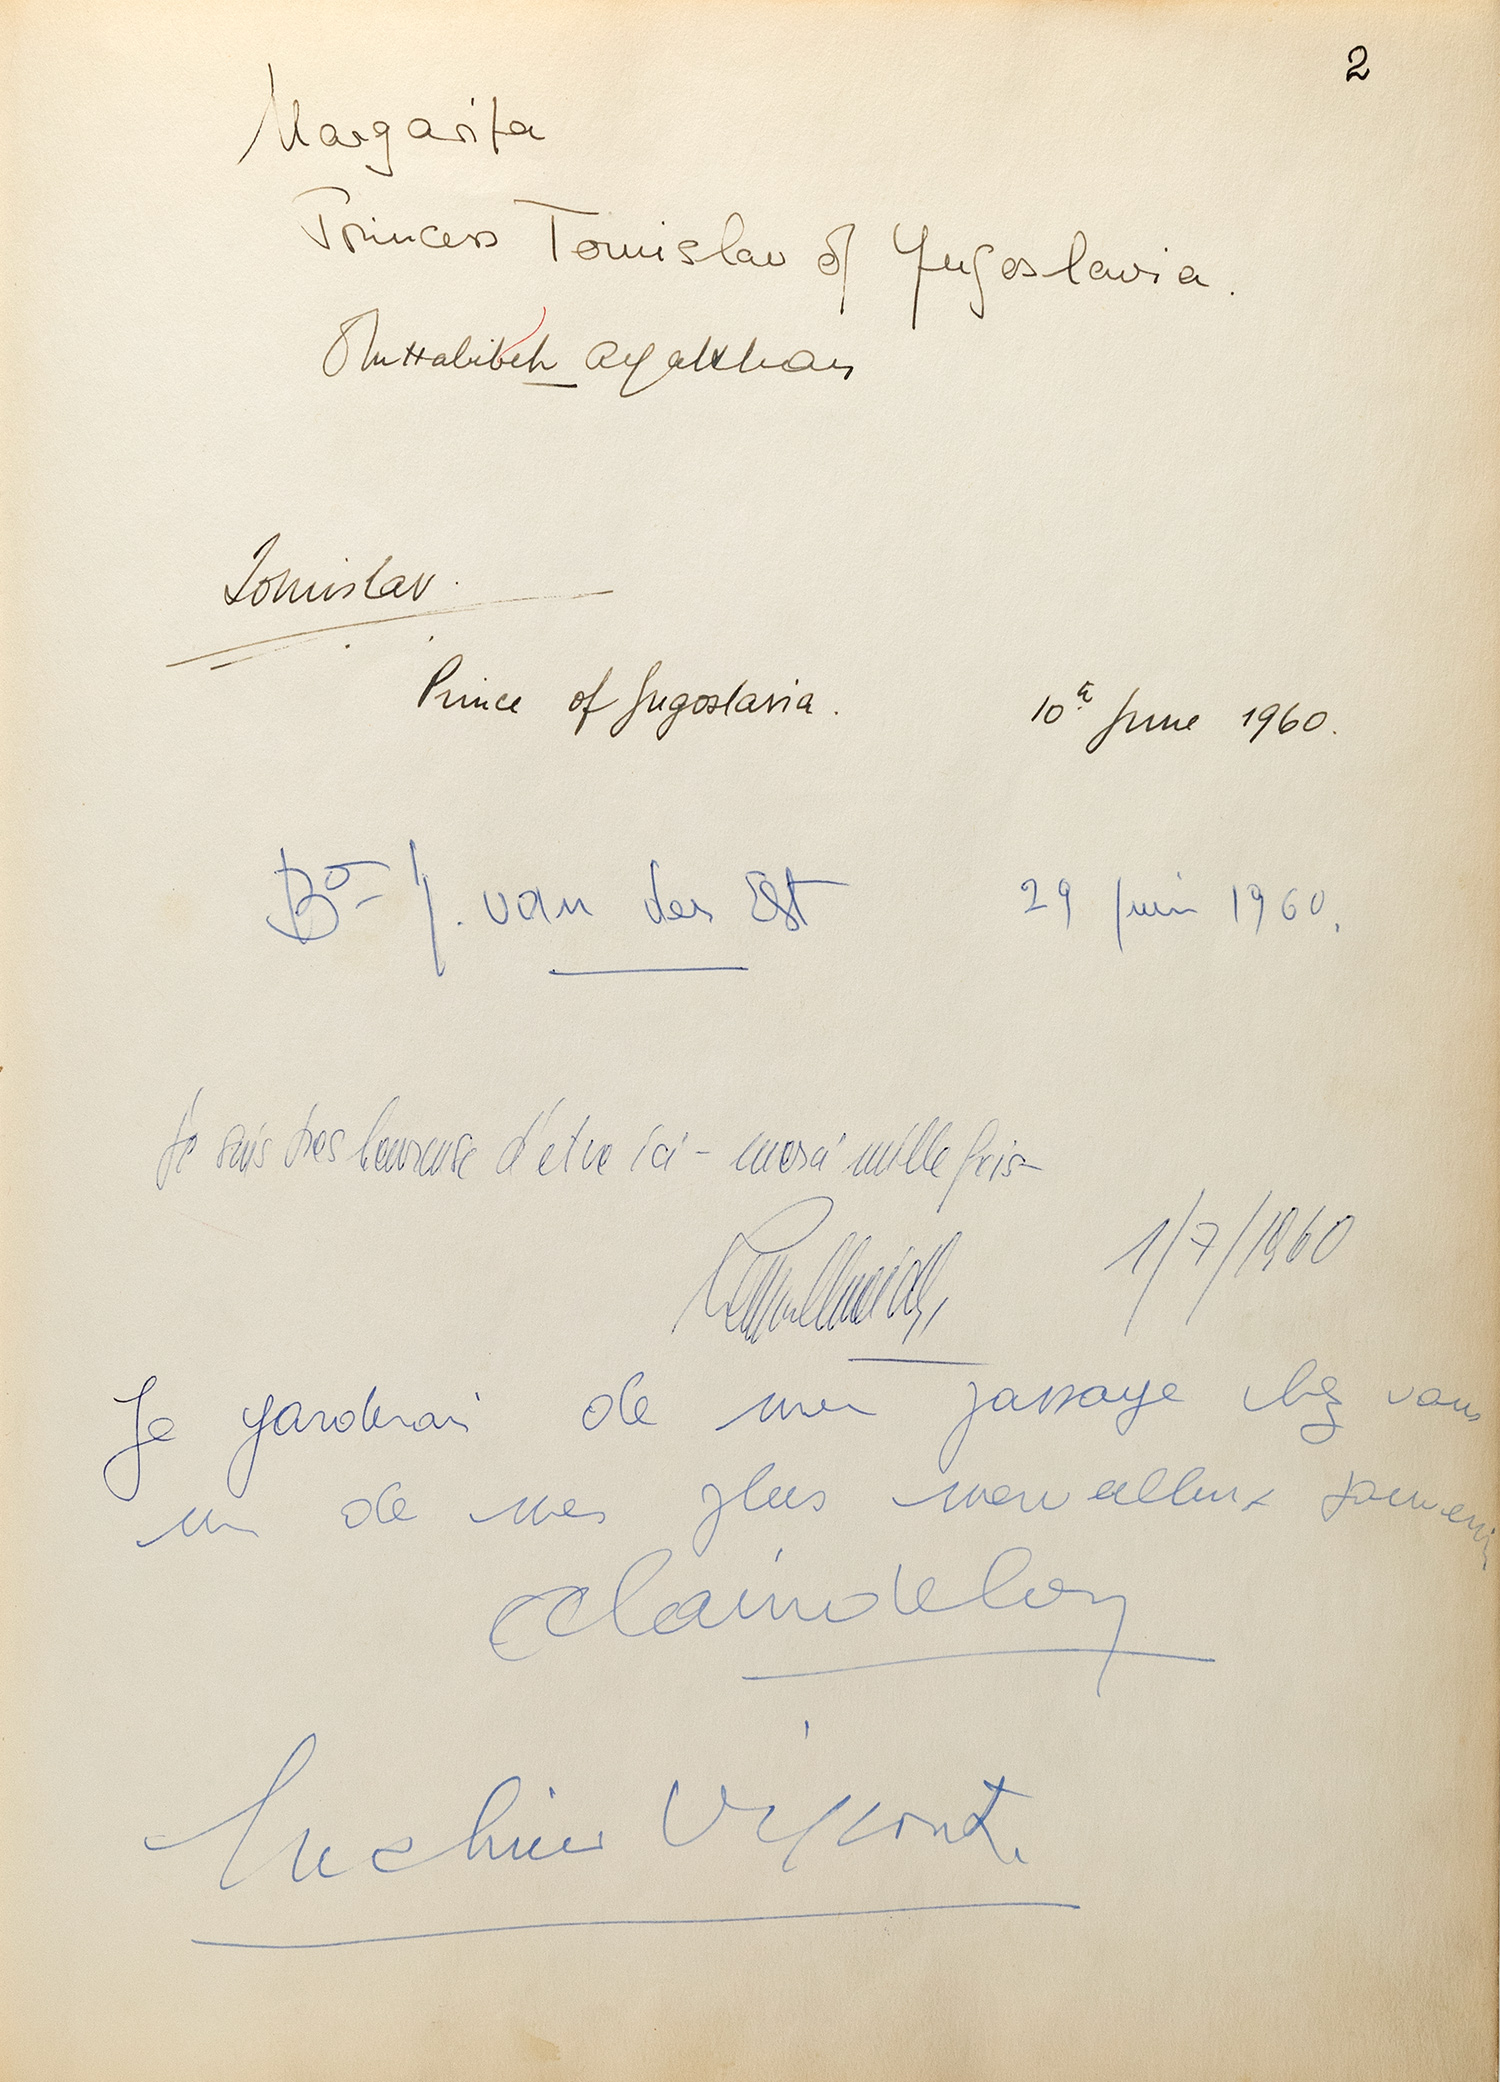 2
Margarita
Princess Tomislav of Yugoslavia.
Ommhabibeh Aga Khan
Tomislav.
Prince of Jugoslavia. 10th June 1960.
Bo- J. van der Est 29 Juin 1960.
Je suis tres heureuse d'etre ici - merci mille fois -
1/7/1960
Je garderai de mon passage chez vous
un de mes plus merveilleux souvenirs
Alain Delon
Luchino Visconti